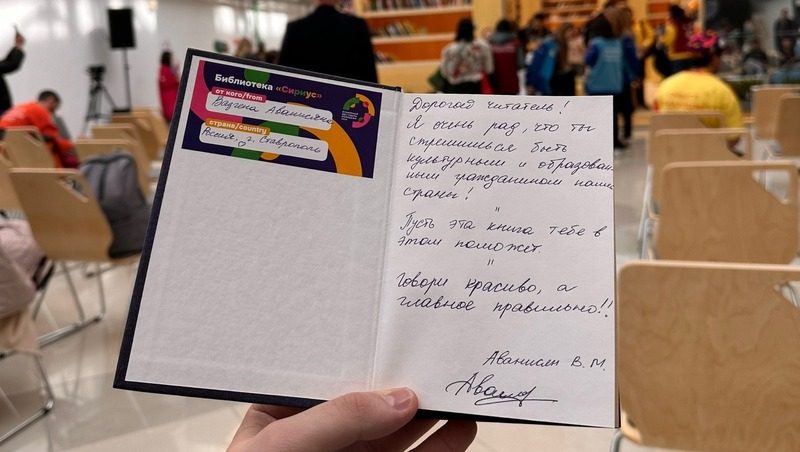 Библиотека «Сириус»
от кого/from
Вазгена Аванисяна
страна/country
Россия, г. Ставрополь
Дорогой читатель!
Я очень рад, что ты
стремишься быть
культурным и образован
ным гражданином нашей
страны!
"
Пусть эта книга тебе в
этом поможет.
"
Говори красиво, а
главное правильно!!
Аванисян В. М.